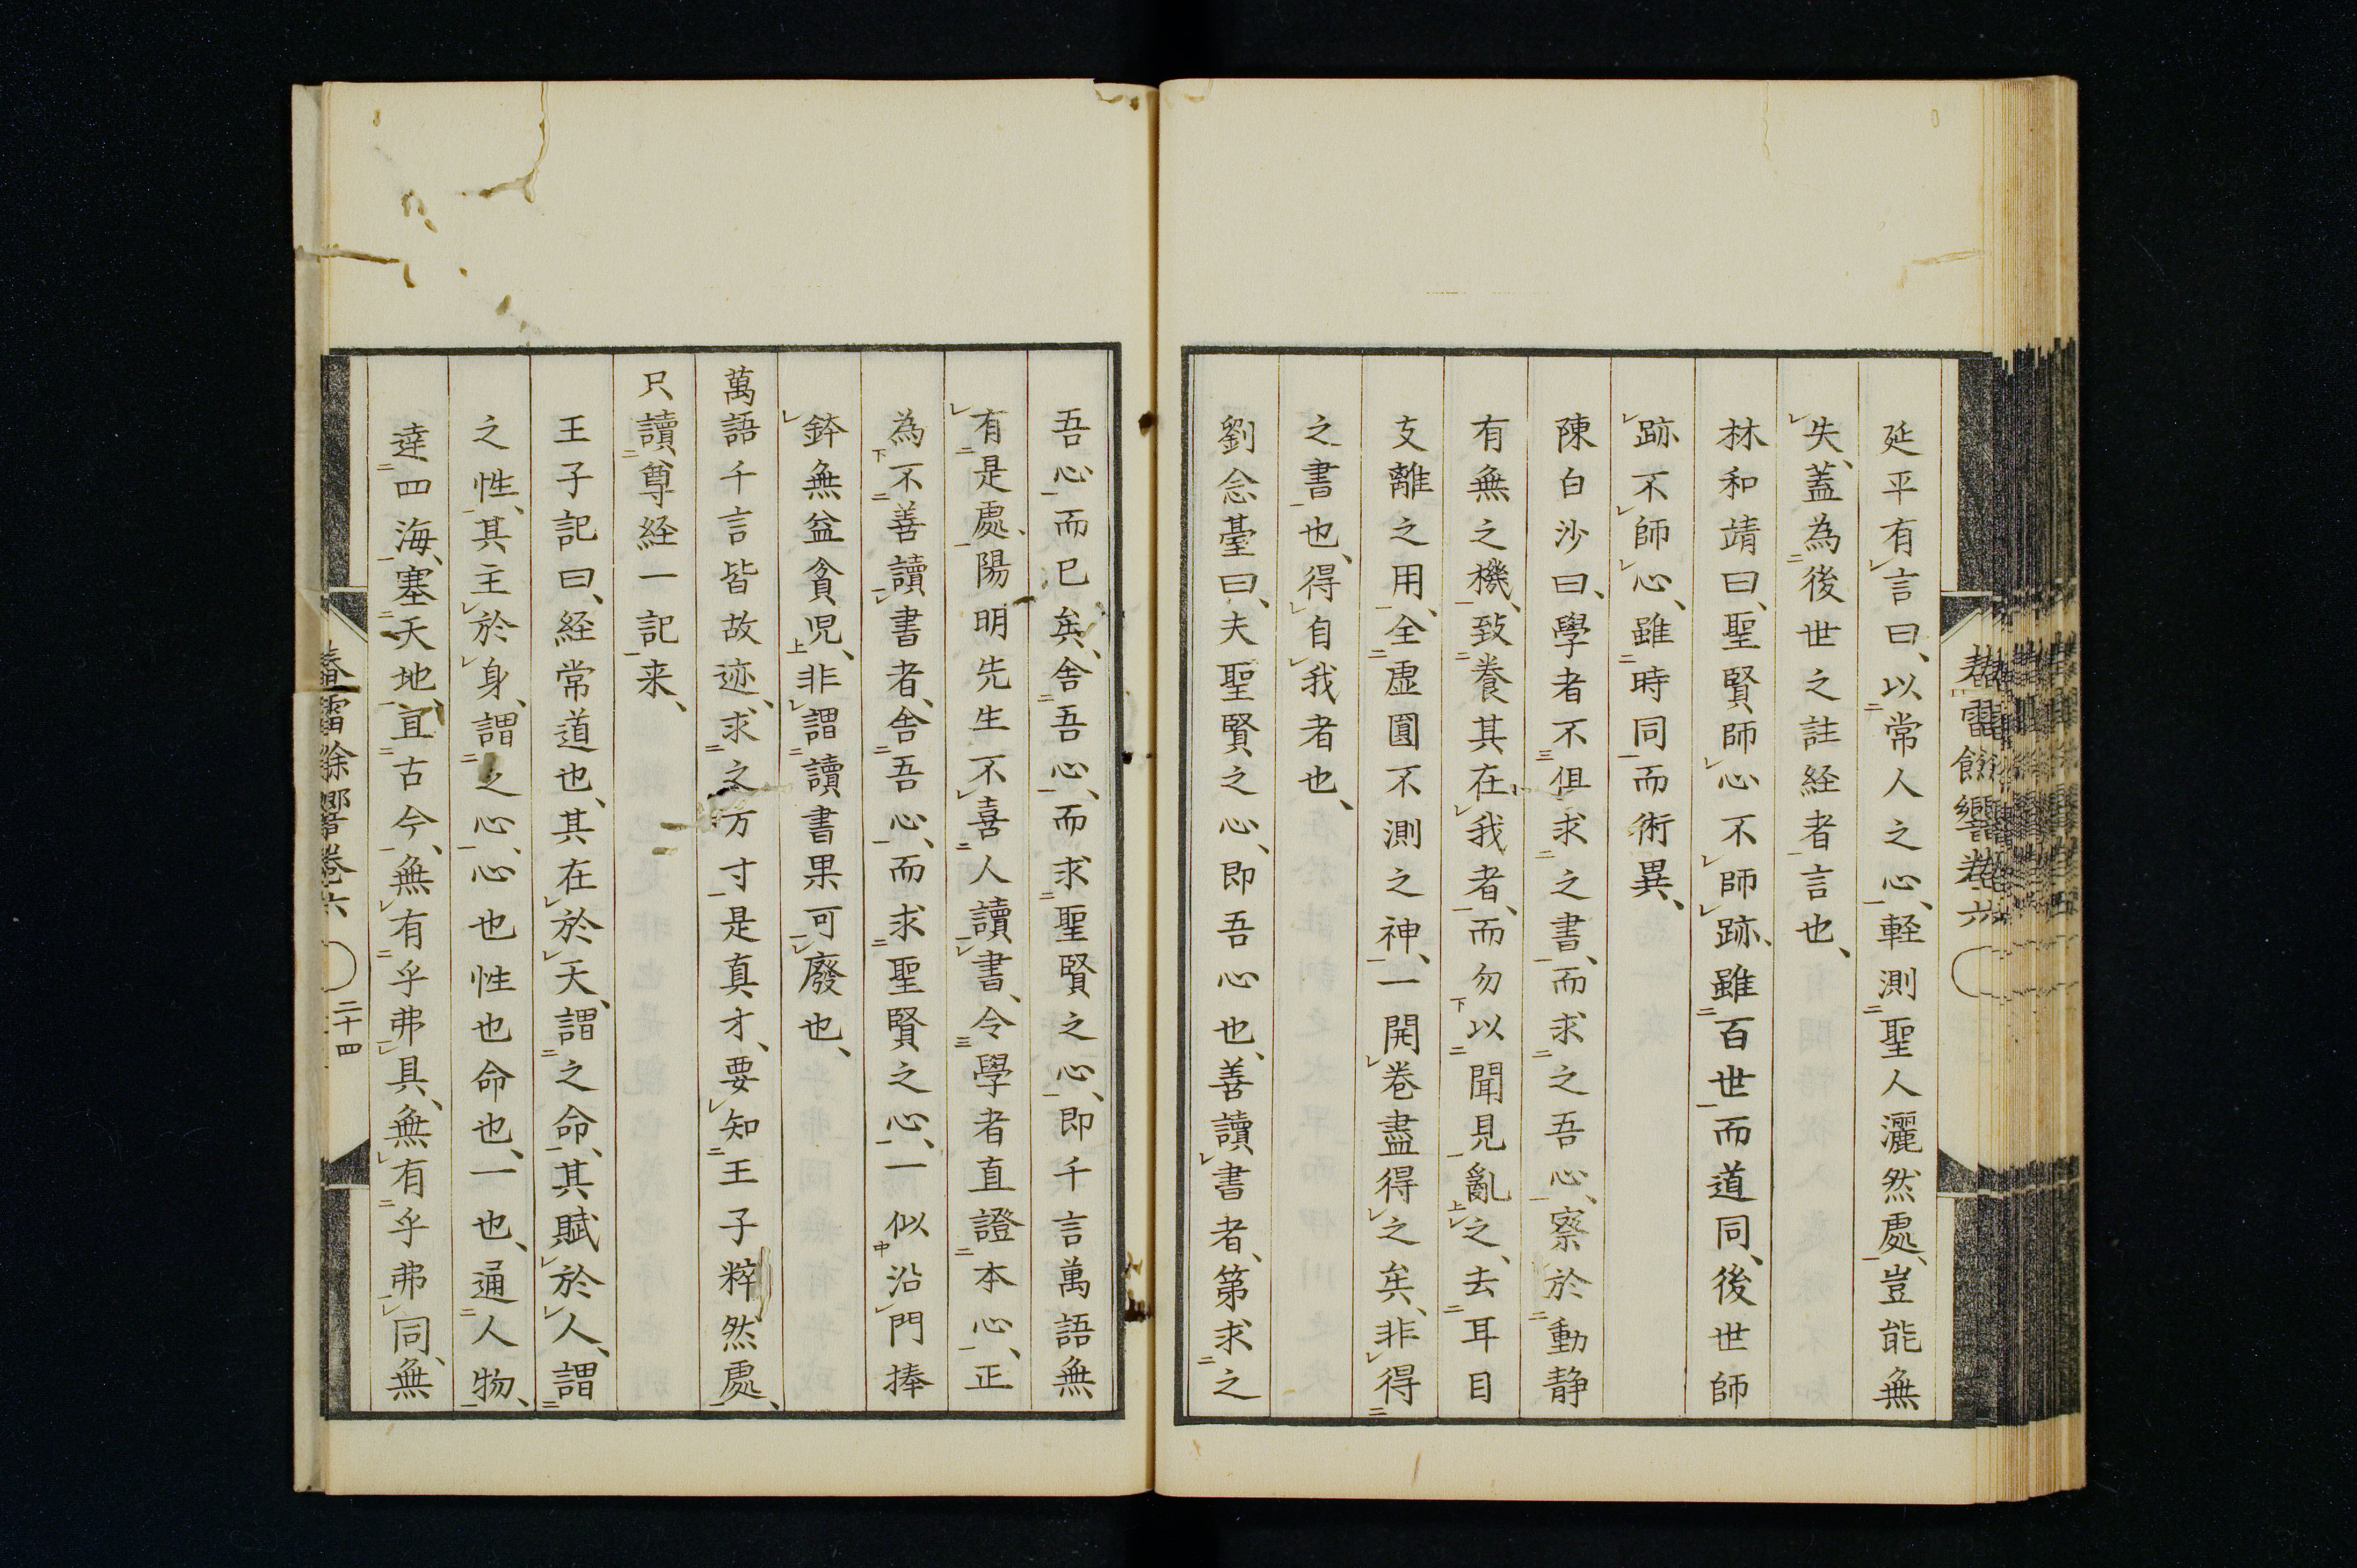 延平有言曰、以常人之心、軽測聖人灑然處、豈能無
失、蓋為後世之註経者言也、
林和靖曰、聖賢師心不師跡、雖百世而道同、後世師
跡不師心、雖時同而術異、
陳白沙曰、學者不俱求之書、而求之吾心、察於動静
有無之機、致養其在我者、而勿以聞見亂之、去耳目
支離之用、全虚圓不測之神、一開巻盡得之矣、非得
之書也、得自我者也、
劉念臺曰、夫聖賢之心、即吾心也、善讀書者、第求之
吾心而已矣、舍吾心、而求聖賢之心、即千言萬語無
有是處、陽明先生不喜人讀書、令學者直證本心、正
為不善讀書者、舍吾心、而求聖賢之心、一似沿門捧
鉢無益貧児、非謂讀書果可廢也、
萬語千言皆故迹、求之方寸是真才、要知王子粹然處、
只讀尊経一記来、
王子記曰、経常道也、其在於天、謂之命、其賦於人、謂
之性、其主於身、謂之心、心也性也命也、一也、通人物、
達四海、塞天地、亘古今、無有乎弗具、無有乎弗同、無
春雷餘響巻六
二十四